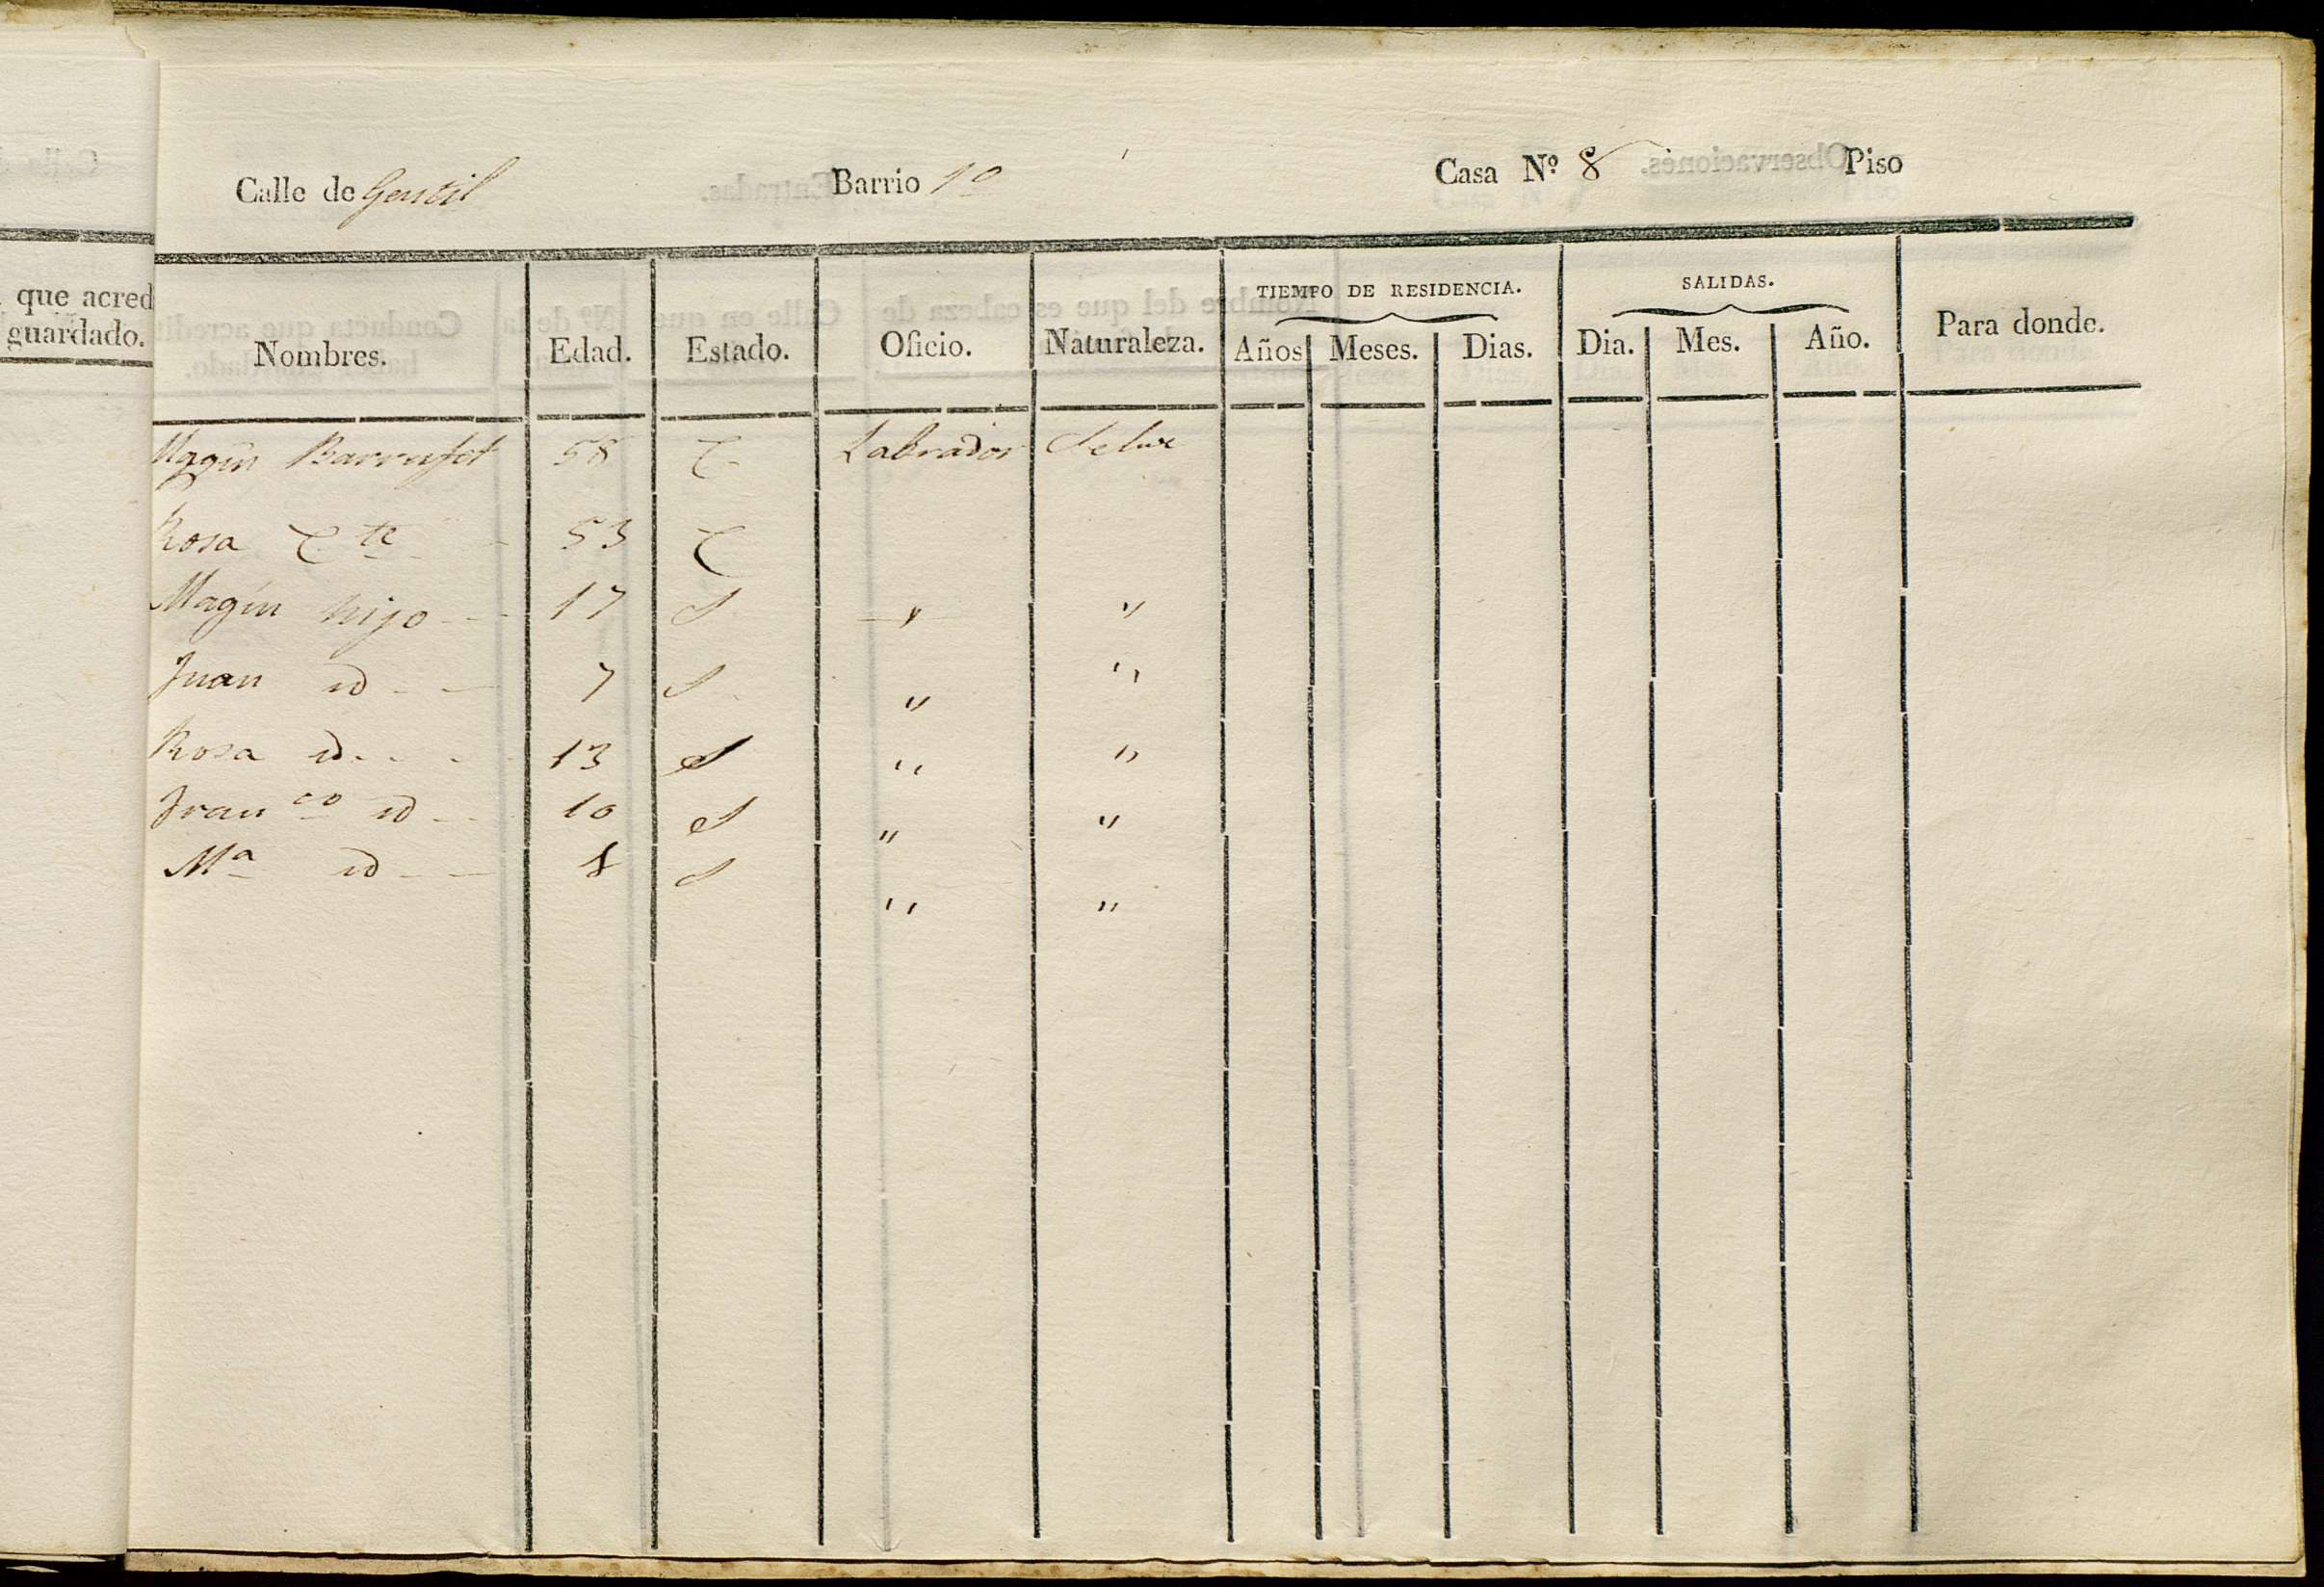 que acred
guardado.
Calle de Gentil Barrio 1º Casa Nº. 8 Piso
TIEMPO DE RESIDENCIA. SALIDAS.
Nombres. Edad. Estado. Oficio. Naturaleza. Años Meses. Dias. Dia. Mes. Año. Para donde.
Magin Barrufet 58 C. Labrador
Rosa C.te 53 C
Magin hijo - - 17 S " "
Juan id - - 7 S " "
Rosa id - - - 13 S " "
Franco id - - 10 S " "
Ma id - - 8 S " "